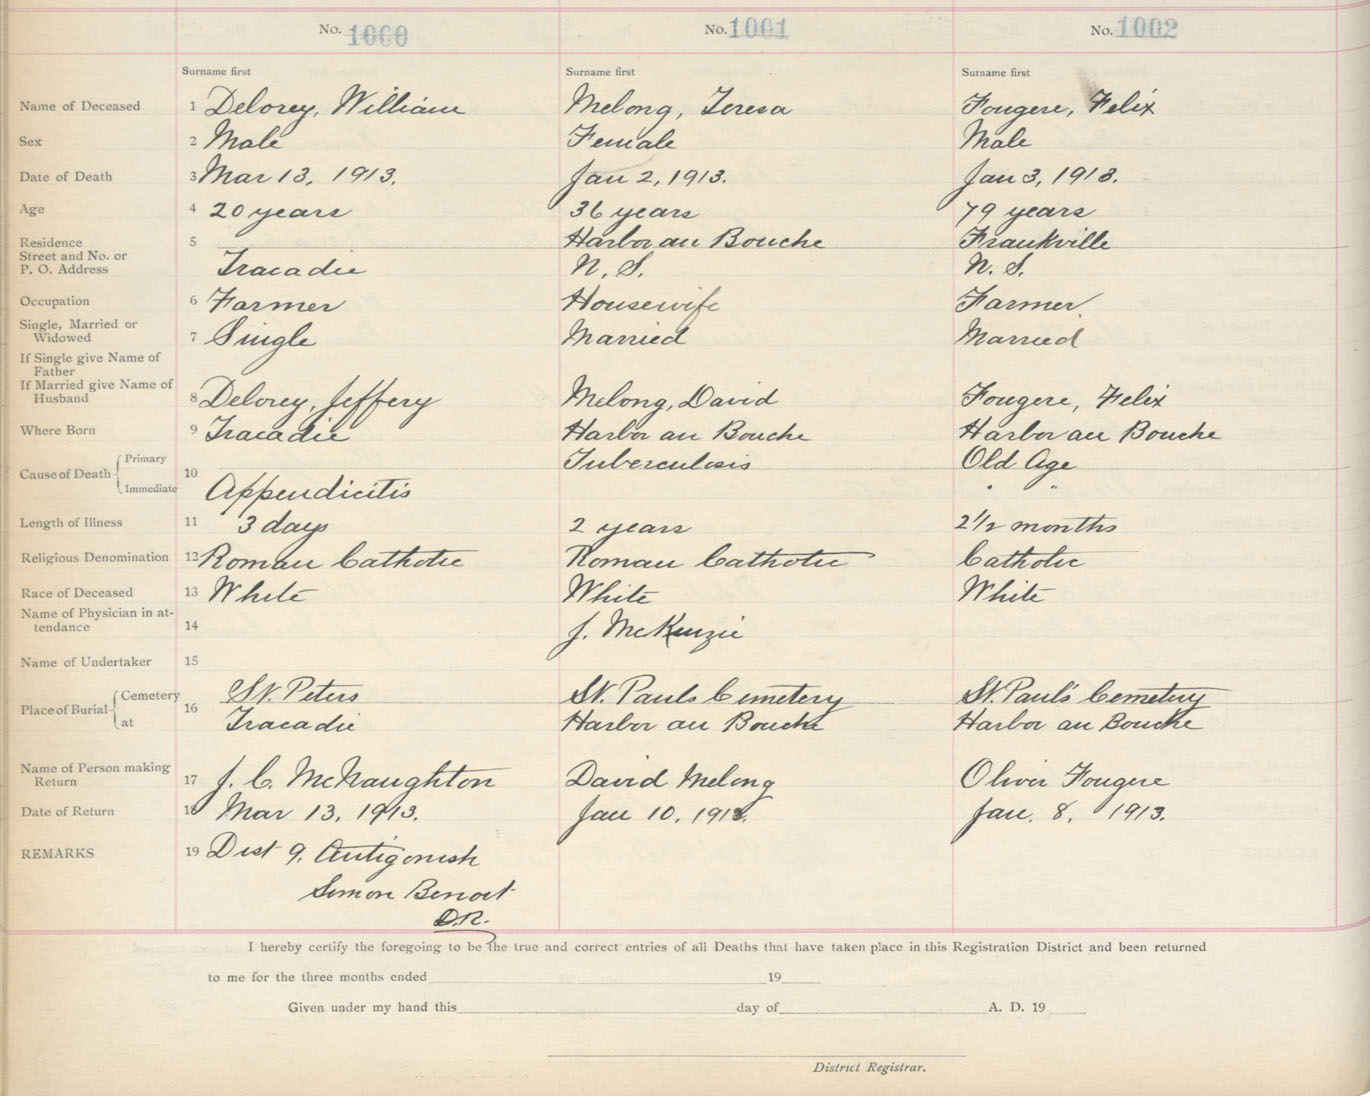 No. 1000 No. 1001 No. 1002
Surname first Surname first Surname first
Name of Deceased 1 Delorey, William Melong, Teresa Fougere, Felix
Sex 2 Male Female Male
Date of Death 3 Mar 13, 1913. Jan 2, 1913. Jan 3, 1913.
Age 4 20 years 36 years 79 years
Residence 5 Harbor au Bouche Frankville
Street and No. or
P. O. Address Tracadie N. S. N. S.
Occupation 6 Farmer Housewife Farmer
Single, Married or
Widowed 7 Single Married Married
If Single give Name of
Father
If Married give Name of
Husband 8 Delorey, Jeffery Melong, David Fougere, Felix
Where Born 9 Tracadie Harbor au Bouche Harbor au Bouche
Primary Tuberculosis Old Age
Cause of Death 10
Immediate Appendicitis " "
Length of Illness 11 3 days 2 years 2 1/2 months
Religious Denomination 12 Roman Catholic Roman Catholic Catholic
Race of Deceased 13 White White White
Name of Physician in at-
tendance 14 J. McKenzie
Name of Undertaker 15
Cemetery St. Peters St. Pauls Cemetery St. Paul's Cemetery
Place of Burial 16
at Tracadie Harbor au Bouche Harbor au Bouche
Name of Person making
Return 17 J. C. McNaughton David Melong Oliver Fougere
Date of Return 18 Mar 13, 1913. Jan 10, 1913. Jan. 8, 1913.
REMARKS 19 Dist 9, Antigonish
Simon Benoit
D.R.
I hereby certify the foregoing to be the true and correct entries of all Deaths that have taken place in this Registration District and been returned
to me for the three months ended 19
Given under my hand this day of A. D. 19
District Registrar.